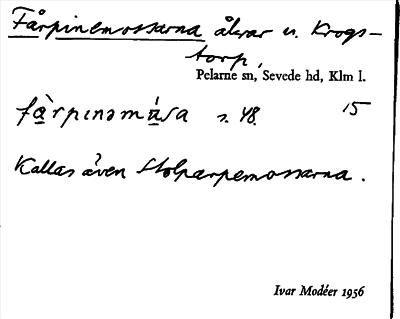 Fårpinemossarna åkrar u. Krogs-
torp,
Pelarne sn, Sevede hd, Klm l.
fàrpɩnəmɑ́sa s. 48. 15
Kallas även Stolparpemossarna.
Ivar Modéer 1956